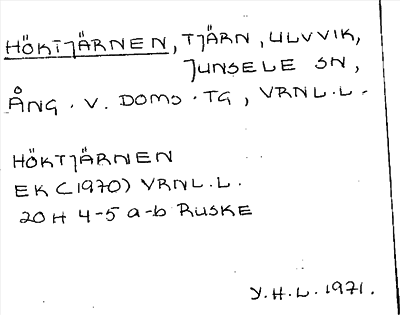 HÖKTJÄRNEN, TJÄRN, ULVVIK,
JUNSELE SN,
ÅNG. V. DOMS. TG, VRNL.L.
HÖKTJÄRNEN
EK (1970) VRNL.L.
20H 4-5 a-b RUSKE
Y.H.L. 1971.